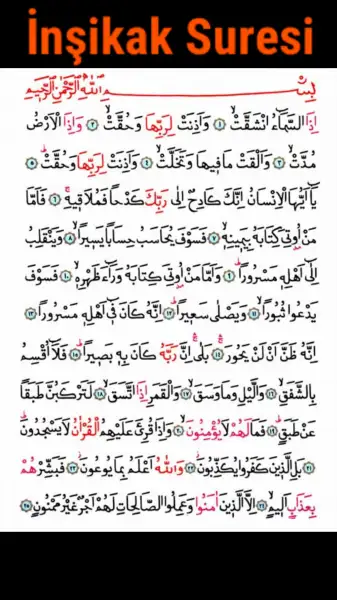 İnşikak Suresi
بِسْمِ اللّٰهِ الرَّحْمٰنِ الرَّحِيمِ
اِذَا السَّمَٓاءُ انْشَقَّتْۙ ﴿١﴾ وَاَذِنَتْ لِرَبِّهَا وَحُقَّتْۙ ﴿٢﴾ وَاِذَا الْاَرْضُ
مُدَّتْۙ ﴿٣﴾ وَاَلْقَتْ مَا فِيهَا وَتَخَلَّتْۙ ﴿٤﴾ وَاَذِنَتْ لِرَبِّهَا وَحُقَّتْۜ ﴿٥﴾
يَٓا اَيُّهَا الْاِنْسَانُ اِنَّكَ كَادِحٌ اِلٰى رَبِّكَ كَدْحاً فَمُلَاقِيهِۚ ﴿٦﴾ فَاَمَّا
مَنْ اُو۫تِيَ كِتَابَهُ بِيَمِينِهِۙ ﴿٧﴾ فَسَوْفَ يُحَاسَبُ حِسَاباً يَسِيراًۙ ﴿٨﴾ وَيَنْقَلِبُ
اِلٰٓى اَهْلِهِ مَسْرُوراًۜ ﴿٩﴾ وَاَمَّا مَنْ اُو۫تِيَ كِتَابَهُ وَرَٓاءَ ظَهْرِهِۙ ﴿١٠﴾ فَسَوْفَ
يَدْعُوا ثُبُوراًۙ ﴿١١﴾ وَيَصْلٰى سَعِيراًۜ ﴿١٢﴾ اِنَّهُ كَانَ فِٓي اَهْلِهِ مَسْرُوراًۜ ﴿١٣﴾
اِنَّهُ ظَنَّ اَنْ لَنْ يَحُورَۚۛ ﴿١٤﴾ بَلٰىۚۛ اِنَّ رَبَّهُ كَانَ بِهِ بَصِيراًۜ ﴿١٥﴾ فَلَٓا اُقْسِمُ
بِالشَّفَقِۙ ﴿١٦﴾ وَالَّيْلِ وَمَا وَسَقَۙ ﴿١٧﴾ وَالْقَمَرِ اِذَا اتَّسَقَۙ ﴿١٨﴾ لَتَرْكَبُنَّ طَبَقاً
عَنْ طَبَقٍۜ ﴿١٩﴾ فَمَا لَهُمْ لَا يُؤْمِنُونَۙ ﴿٢٠﴾ وَاِذَا قُرِئَ عَلَيْهِمُ الْقُرْاٰنُ لَا يَسْجُدُونَۜ
﴿٢١﴾ بَلِ الَّذِينَ كَفَرُوا يُكَذِّبُونَۘ ﴿٢٢﴾ وَاللّٰهُ اَعْلَمُ بِمَا يُوعُونَۘ ﴿٢٣﴾ فَبَشِّرْهُمْ
بِعَذَابٍ اَلِيمٍۙ ﴿٢٤﴾ اِلَّا الَّذِينَ اٰمَنُوا وَعَمِلُوا الصَّالِحَاتِ لَهُمْ اَجْرٌ غَيْرُ مَمْنُونٍ ﴿٢٥﴾